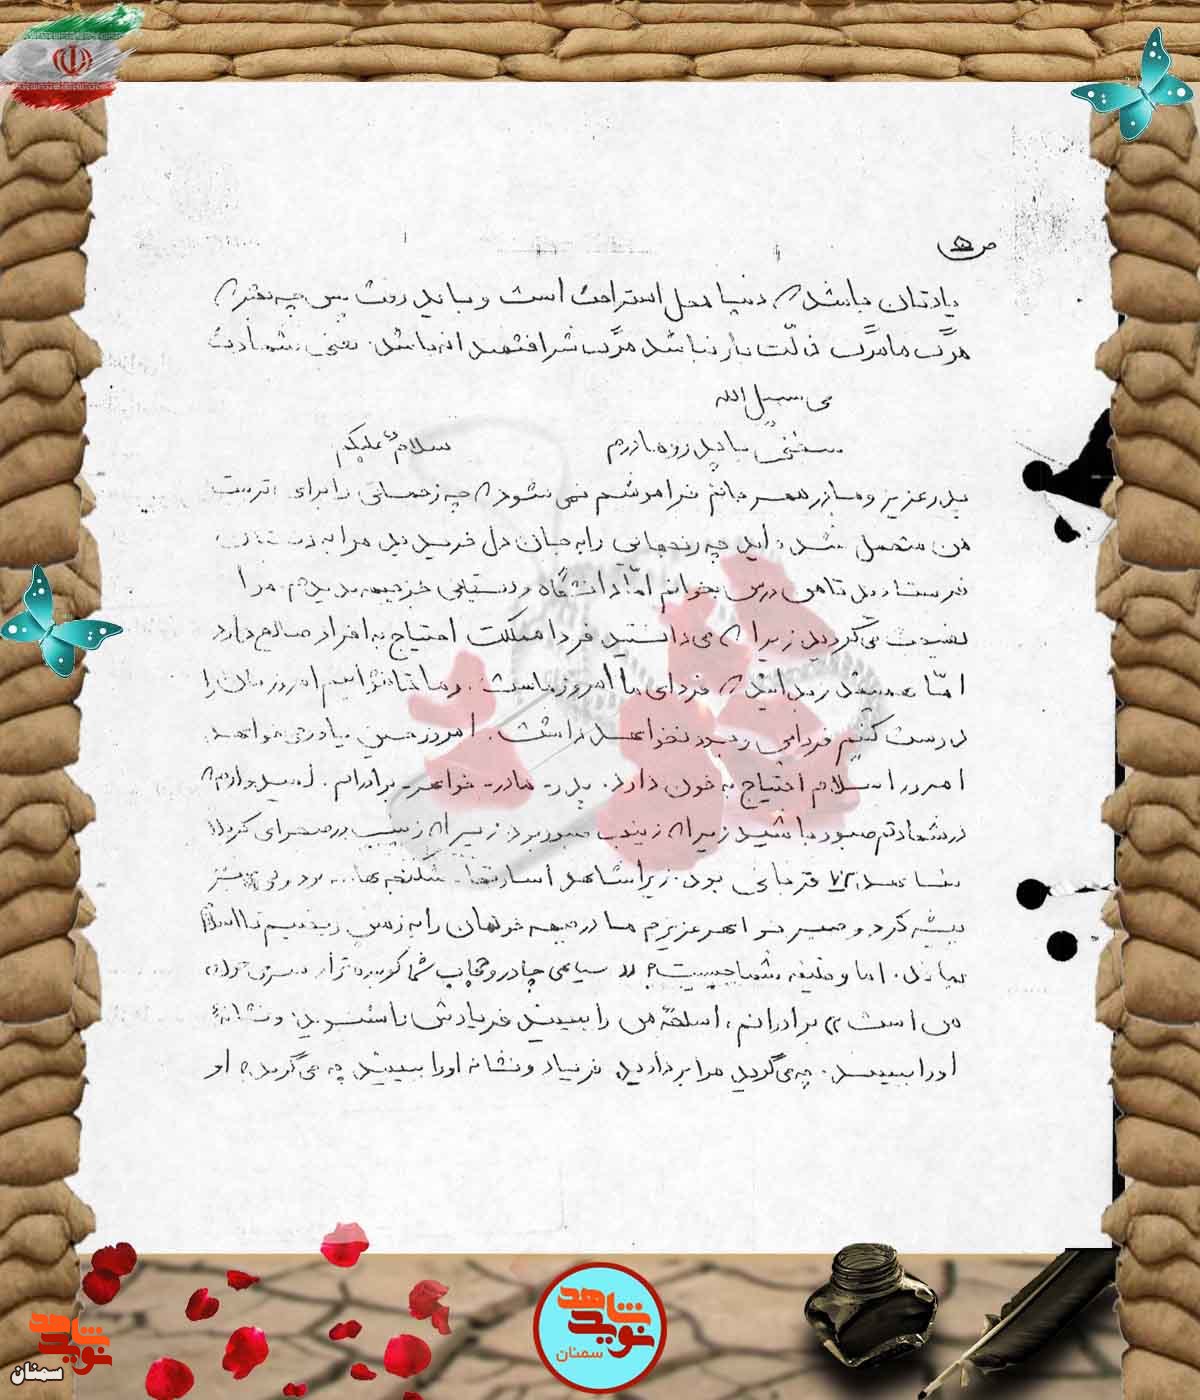 ص ۵
یادتان باشد که دنیا محل استراحت است و باید رفت پس چه بهتر که
مرگ ما مرگ ذلّت بار نباشد مرگ شرافتمندانه باشد. یعنی شهادت
فی سبیل الله
سخنی با پدر و مادرم سلامٌ علیکم
پدر عزیز و مادر مهربانم فراموشم نمی‌شود که چه زحماتی را برای تربیت
من متحمل شده‌اید چه رنجهایی را به جان دل خریدید مرا به
فرستادید تا من درس بخوانم امّا دانشگاه و دستیابی مرا
نصیحت می‌کردید زیرا که می‌دانستید فردا مملکت احتیاج به افراد صالح دارد
امّا همیشه بدانید که فردای ما امروز ماست. و ما تا نتوانیم امروزمان را
درست کنیم فردایی وجود نخواهد داشت. امروز حسین یاور می‌خواهد
امروز اسلام احتیاج به خون دارد. پدر - مادر - خواهر - برادرانم. امیدوارم که
در شهادتم صبور باشید زیرا که زینب صبور بود. زیرا که زینب در صحرای کربلا
شاهد ۷۲ قربانی بود. زیرا شاهد اسارتها. شکنجه‌ها... بود ولی صبر
پیشه کرد و صبر خواهر عزیزم ما در جبهه خونمان را به زمین ریختیم تا اسلام
بماند. اما وظیفه شما چیست؟ «سیاهی چادر و حجاب شما کوبنده‌تر از سرخی خون
من است» برادرانم، اسلحهٔ من را ببینید فریادش را بشنوید. و نشانهٔ
او را ببینید. چه می‌گوید مرا بردارید. فریاد و نشانه او را ببینید چه می‌گوید؟ او
نوید شاهد
سمنان
نوید شاهد
سمنان